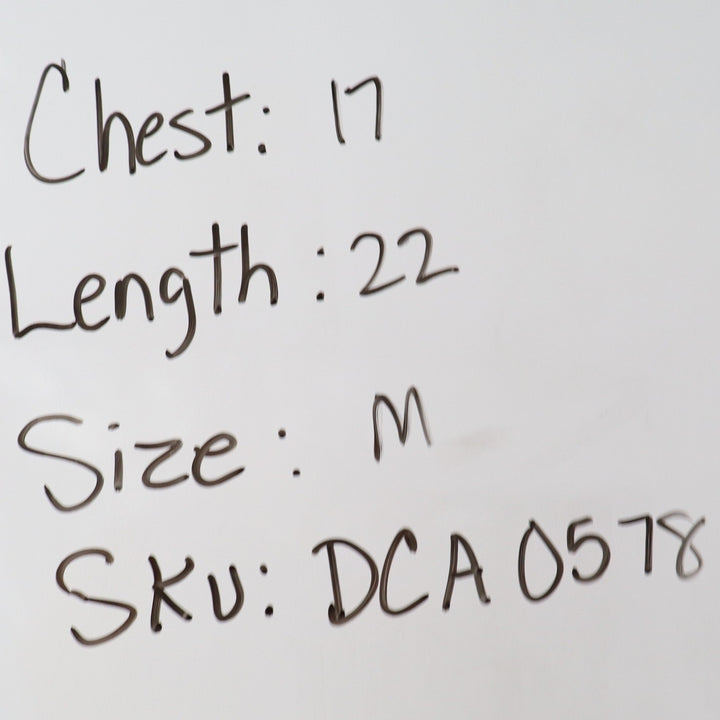 Chest: 17
Length: 22
Size: M
SKU: DCA 0578